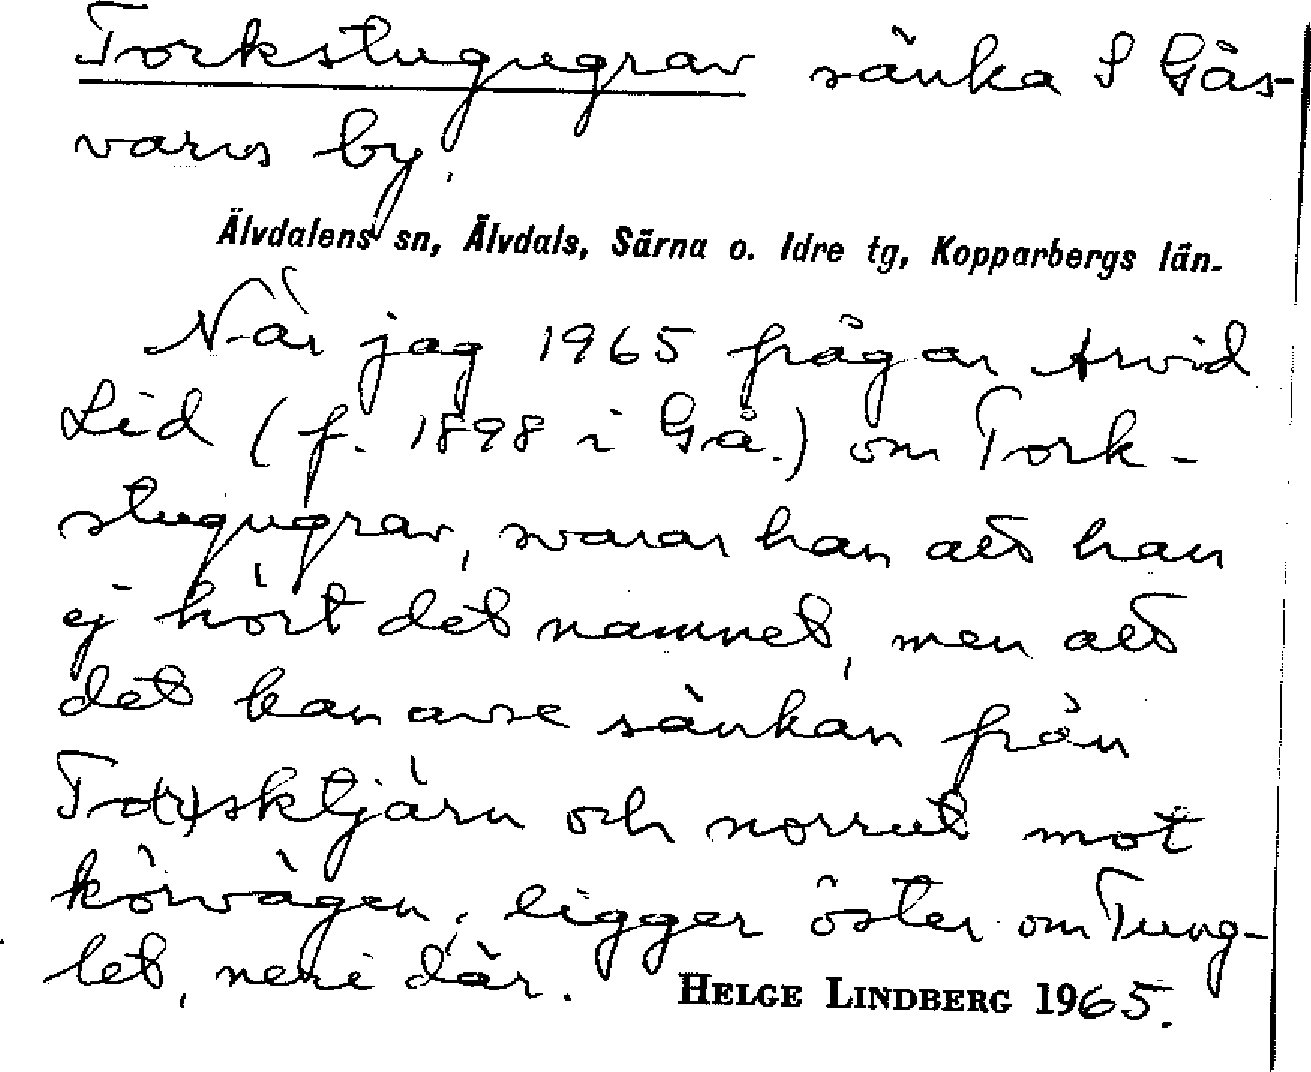 Torkstugugrav sänka S Gås-
varvs by.
Älvdalens sn, Älvdals, Särna o. Idre tg, Kopparbergs län.
När jag 1965 frågar Arvid
Lid (f. 1898 i Gå.) om Tork-
stugugrav, svarar han att han
ej hört det namnet, men att
det kan avse sänkan från
To(r)sktjärn och norrut mot
körvägen, ligger öster om Tung-
let, neri där.
HELGE LINDBERG 1965.